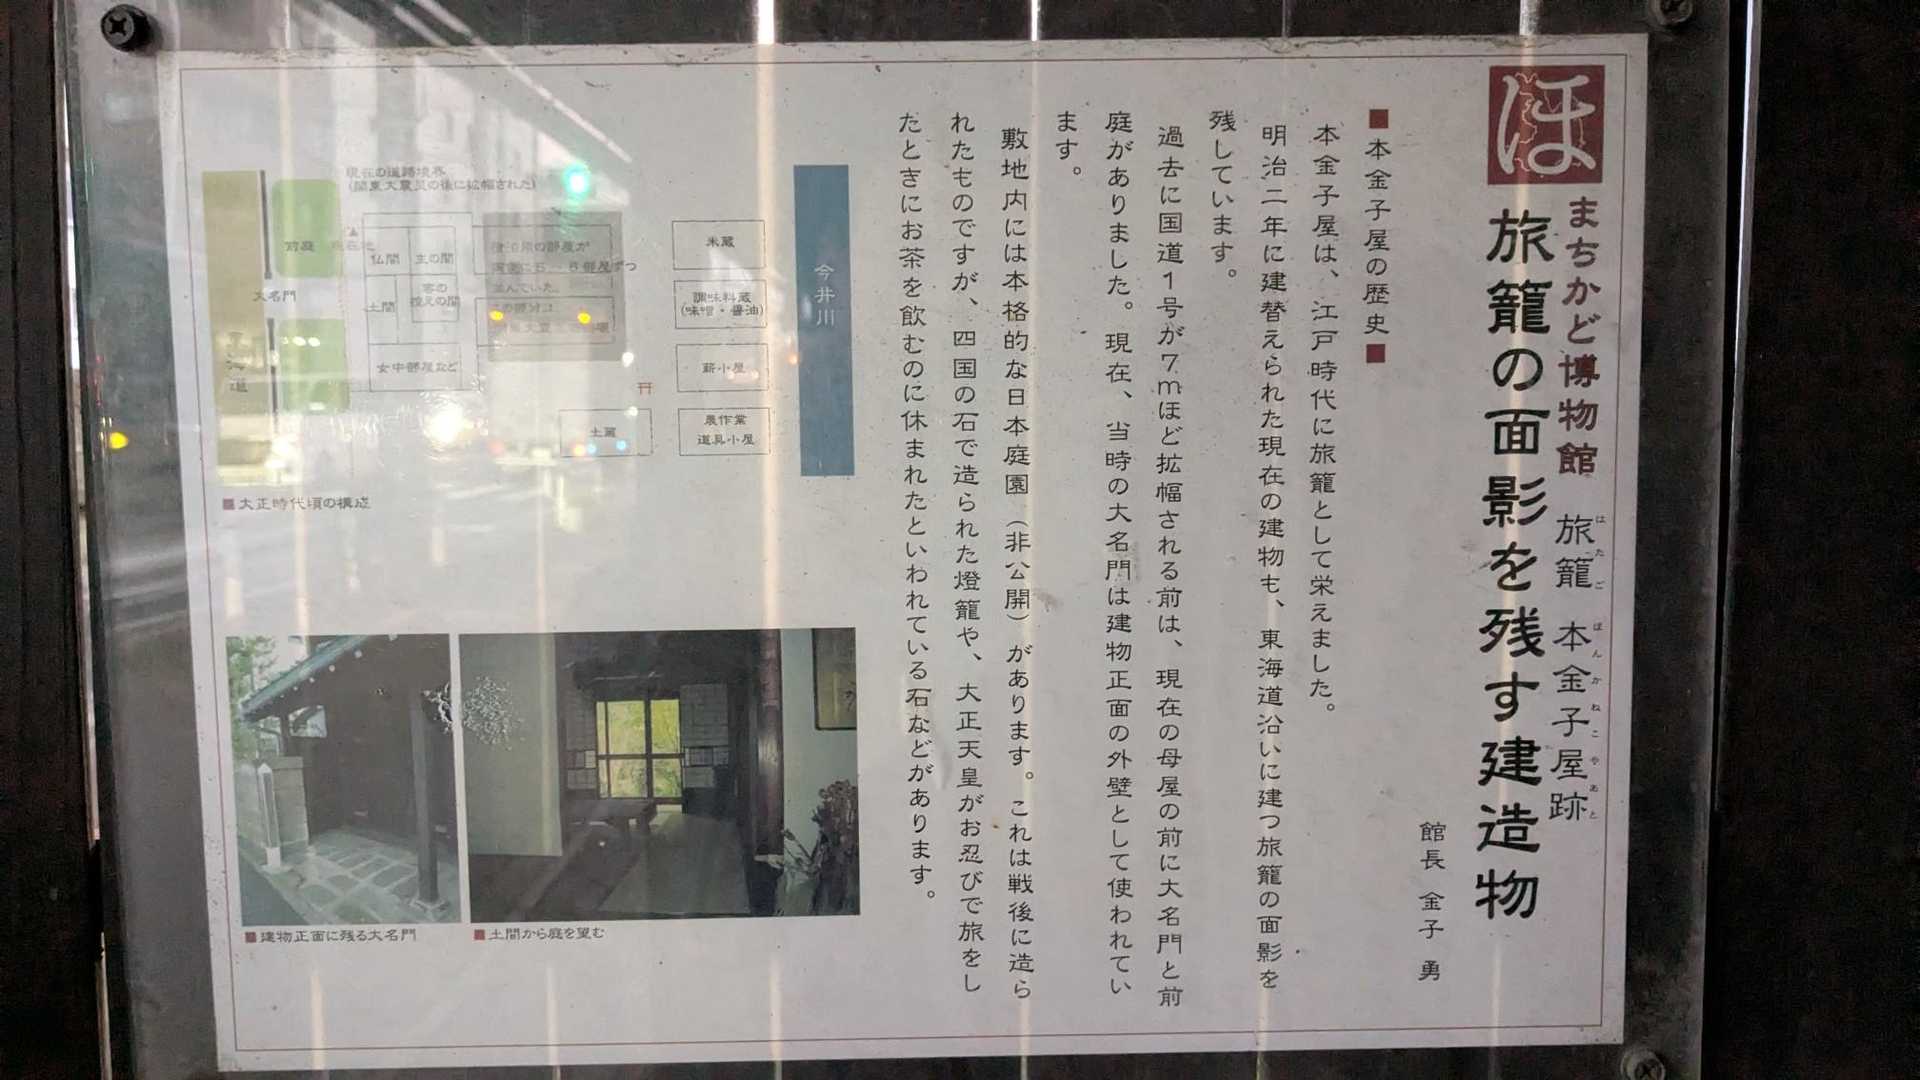 ほ
まちかど博物館 旅籠 本金子屋跡
はたご ほんかねこやあと
旅籠の面影を残す建造物
館長 金子 勇
■本金子屋の歴史■
本金子屋は、江戸時代に旅籠として栄えました。
明治二年に建替えられた現在の建物も、東海道沿いに建つ旅籠の面影を
残しています。
過去に国道1号が7mほど拡幅される前は、現在の母屋の前に大名門と前
庭がありました。現在、当時の大名門は建物正面の外壁として使われてい
ます。
敷地内には本格的な日本庭園（非公開）があります。これは戦後に造ら
れたものですが、四国の石で造られた燈籠や、大正天皇がお忍びで旅をし
たときにお茶を飲むのに休まれたといわれている石などがあります。
今井川
米蔵
調味料蔵
(味噌・醤油)
薪小屋
農作業
道具小屋
土蔵
現在の道路境界
(関東大震災の後に拡幅された)
前庭
現在地
仏間
主の間
客の
控えの間
土間
女中部屋など
大名門
海道
■大正時代頃の構成
■建物正面に残る大名門
■土間から庭を望む